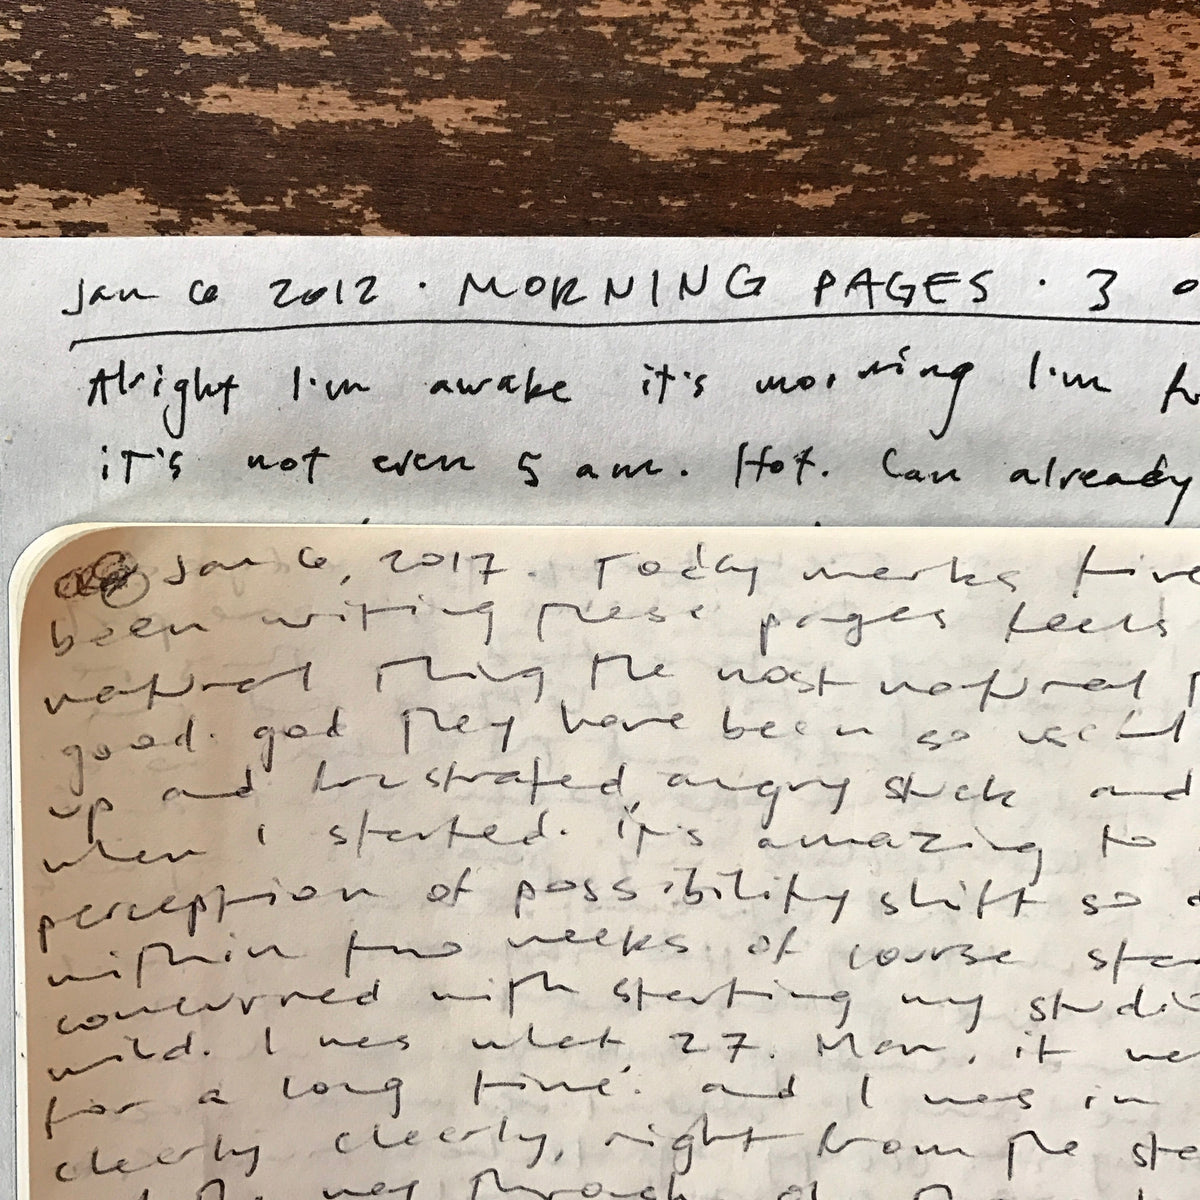 Jan 6 2012 · MORNING PAGES · 3
Alright I'm awake it's morning I'm
it's not even 5 am. Hot. Can already
Jan 6, 2017. Today marks five
been writing these pages feels
natural thing the most natural
good. god they have been so useful
up and frustrated, angry stuck and
when I started. it's amazing to
perception of possibility shift so
within two weeks. of course
concurred with starting my
wild. I was what 27. Man, it
for a long time. and I was in
clearly clearly, right from the
way through